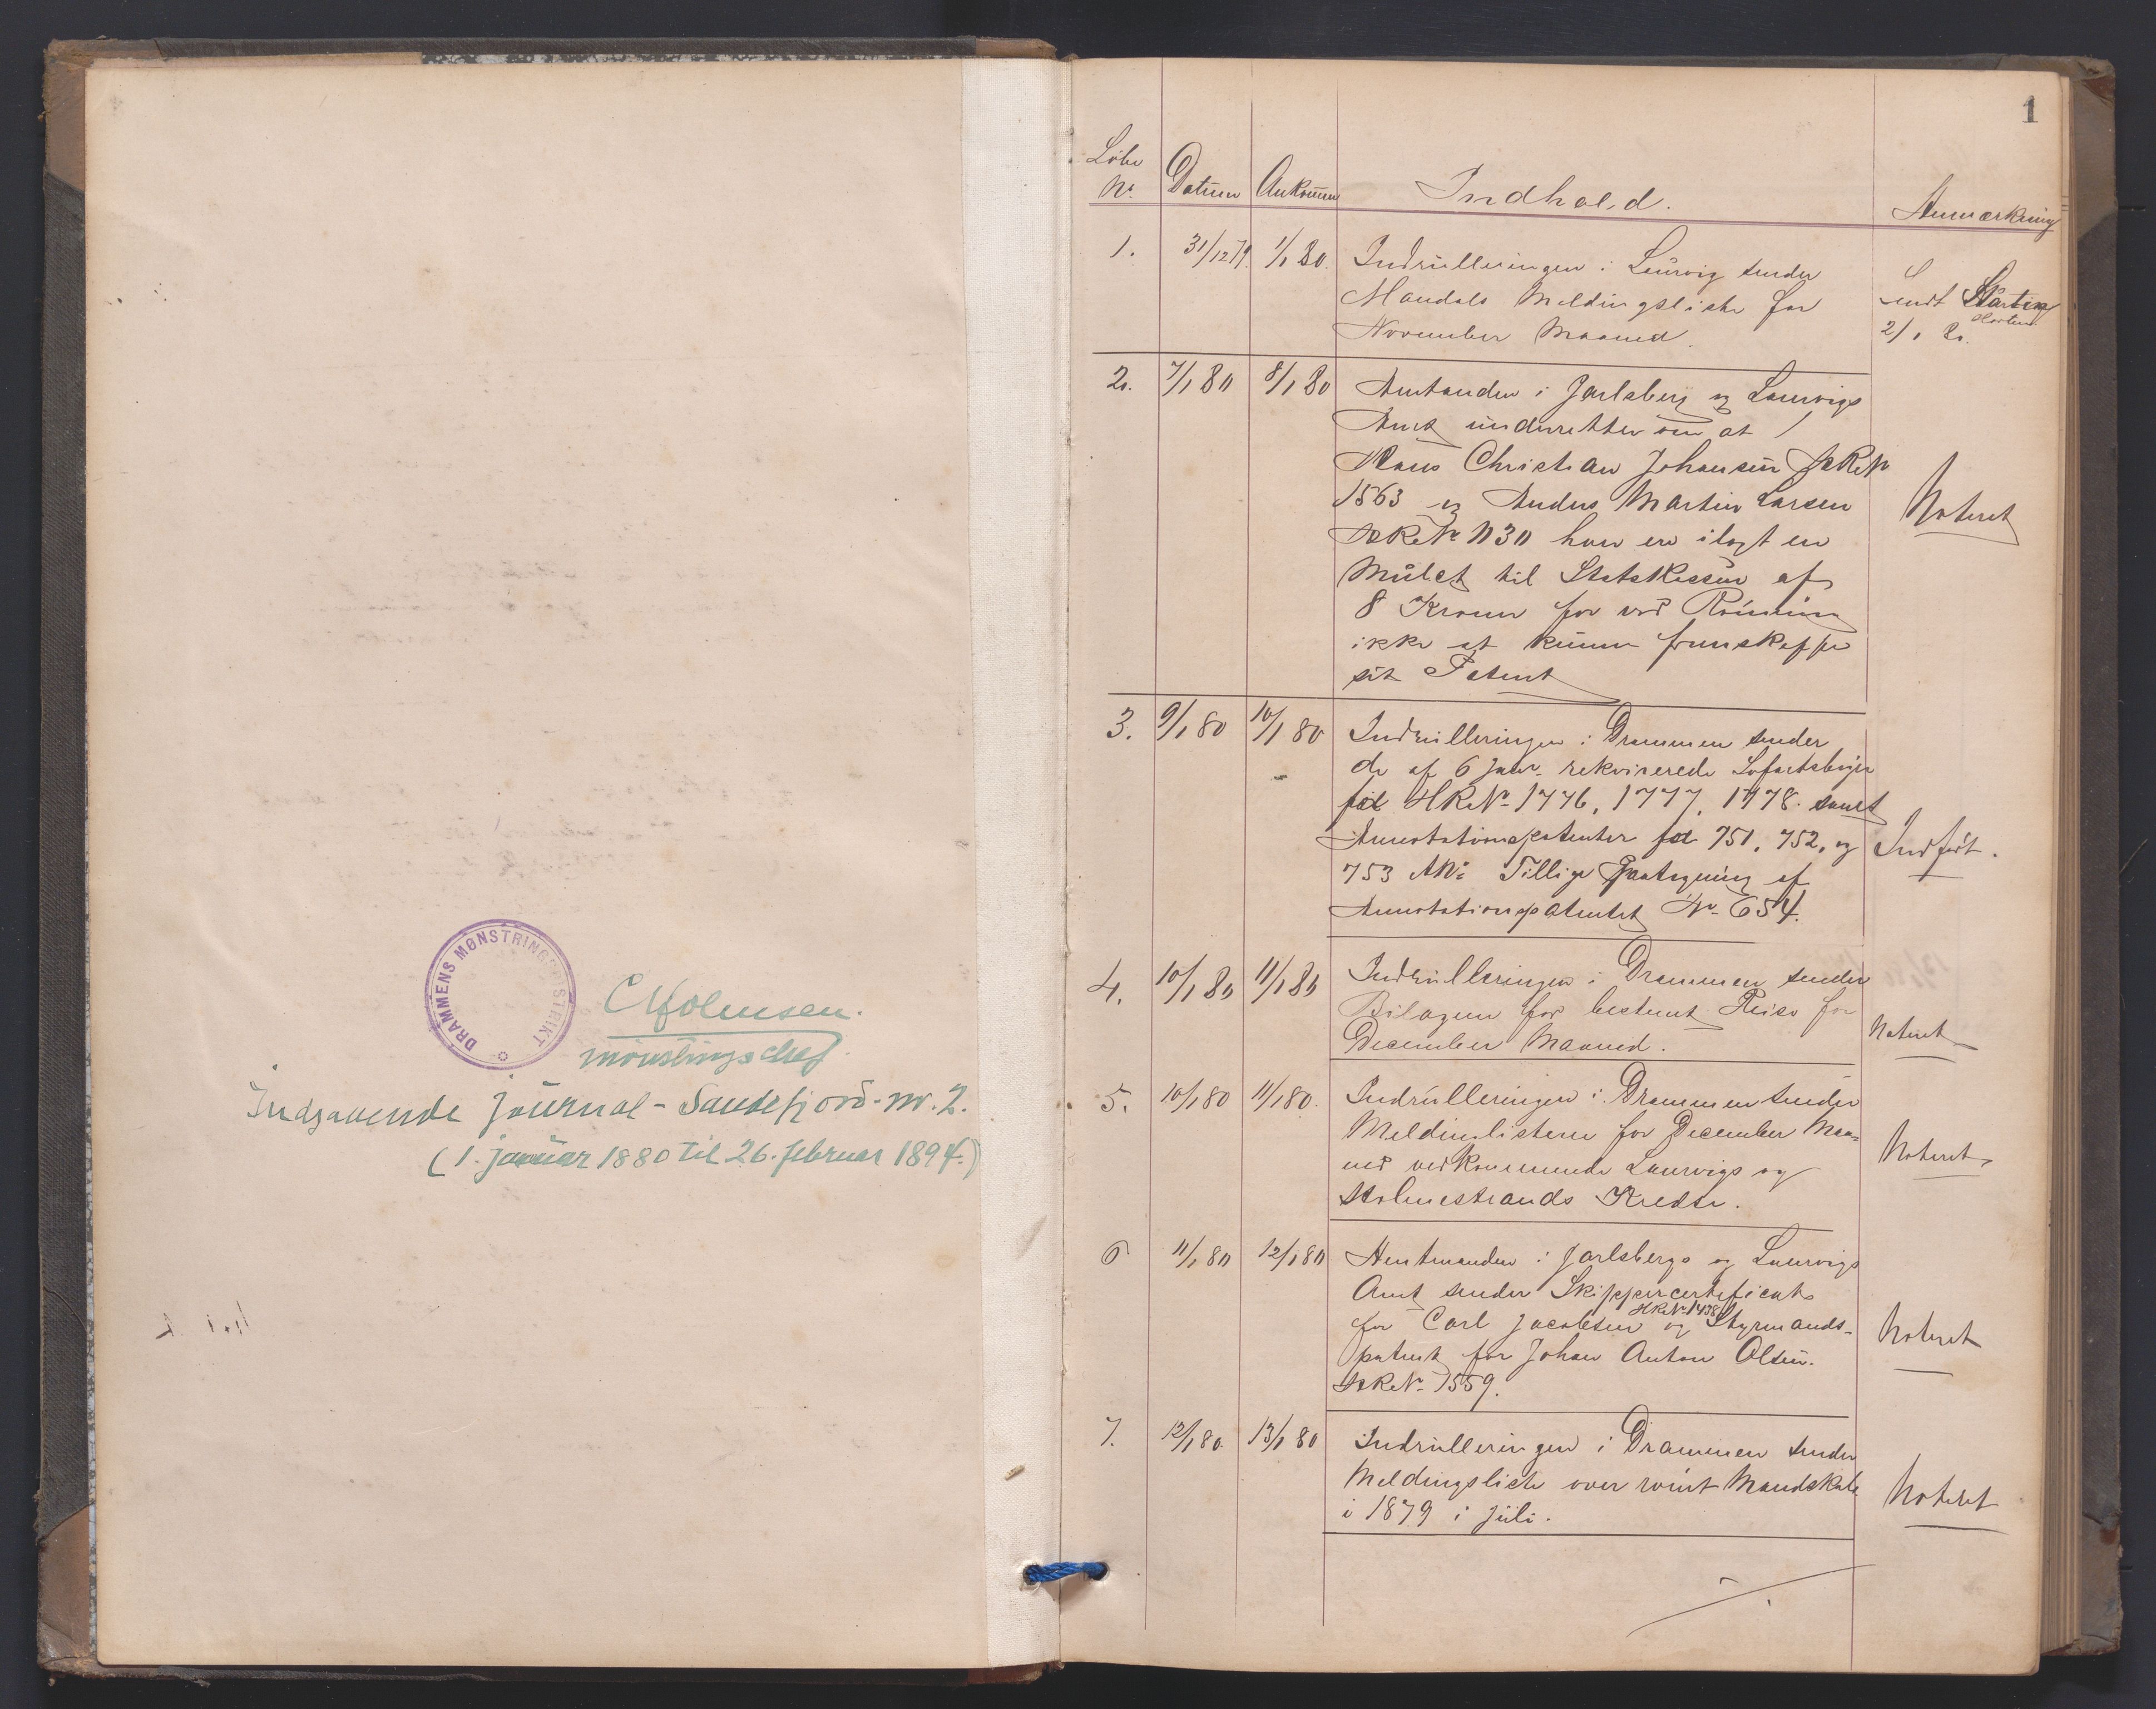 DRAMMENS MØNSTRINGSDISTRIKT
mönstringschef.
Indgaaende journal - Sandefjord - nr. 2.
(1. januar 1880 til 26. februar 1894.)
1
Løbe
No. Datum Ankommen Indhold. Anmærkning
1. 31/12 79. 1/1 80. Indrulleringen i Laurvig sender
Mandals Meldingsliste for
November Maaned.
sendt
Horten
2/1 80.
2. 7/1 80 8/1 80 Amtmanden i Jarlsberg og Laurvigs
Amt underretter om at
Hans Christian Johansen
1563 og Anders Martin Larsen
1130 hver er ilagt en
Mulct til Statskassen af
8 Kroner for ved Rømning
ikke at kunne fremskaffe
sit Patent
Noteret
3. 9/1 80 10/1 80 Indrulleringen i Drammen sender
de af 6 Janr. rekvirerede Søfartsbøger
for HRNo 1776, 1777, 1778. samt
Annotationspatenter for 751, 752, og
753 ANo Tillige Paategning af
Annotationspatentet No 654.
Indført.
4. 10/1 80 11/1 80 Indrulleringen i Drammen sender
Bilagene for bestemt Reise for
December Maaned.
Noteret
5. 10/1 80 11/1 80. Indrulleringen i Drammen sender
Meldinlisterne for December Maa-
ned vedkommende Laurvigs og
Holmestrands Kredse.
Noteret
6 11/1 80 12/1 80 Amtmanden i Jarlsbergs og Laurvigs
Amt sender Skippercertificats
HRNo 1438
for Carl Jacobsen og Styrmands-
patent for Johan Anton Olsen.
1559.
Noteret
7. 12/1 80. 13/1 80 Indrulleringen i Drammen sender
Meldingsliste over rømt Mandskab
i 1879 i Juli.
Noteret